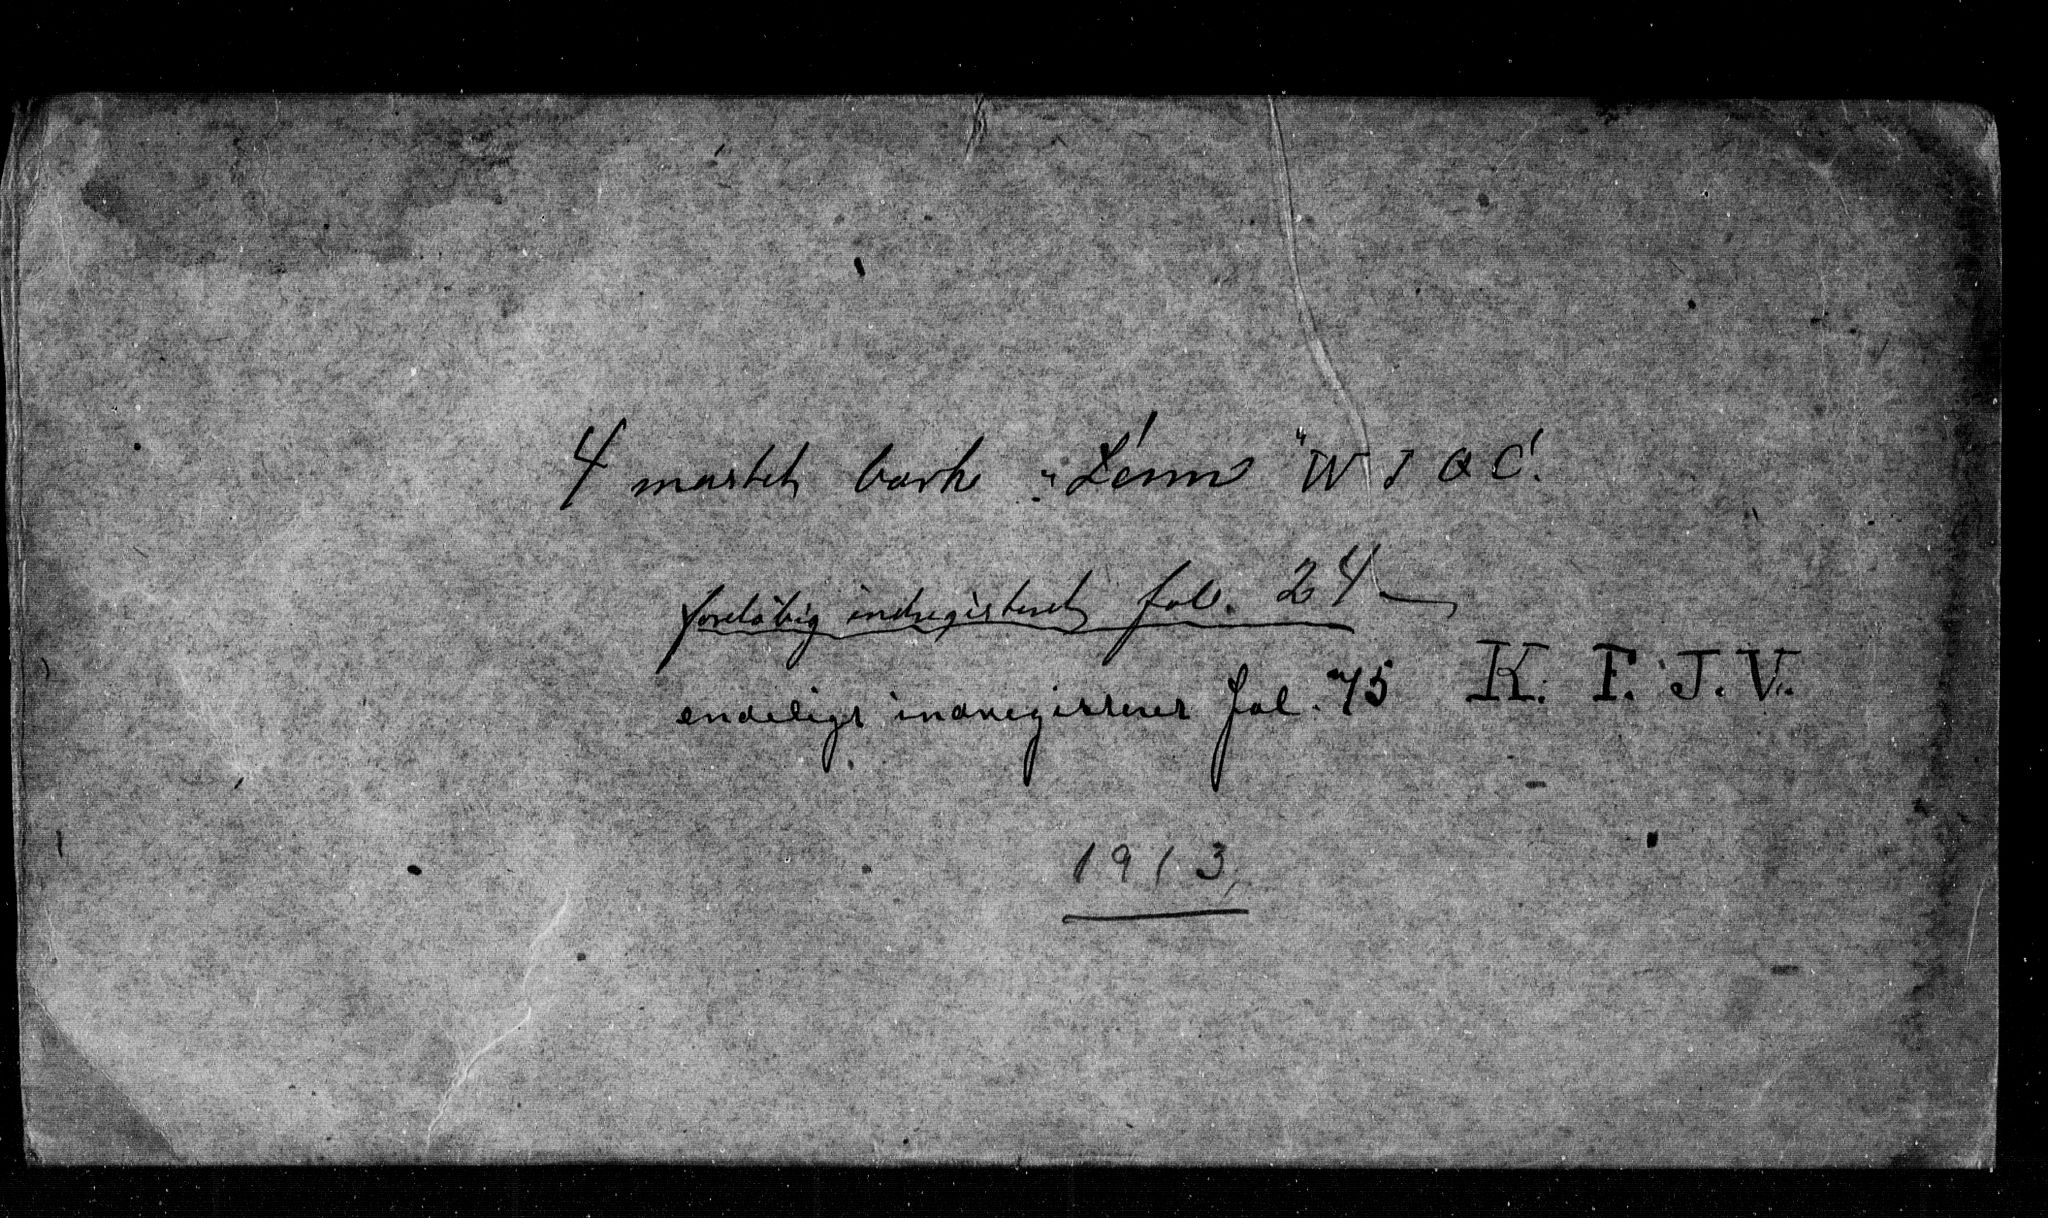 4 mastet bark „Lénn" W J Q C.
foreløbig indregistreret fol. 24
endeligt indregistrert fol. 75 K. F. J. V.
1913